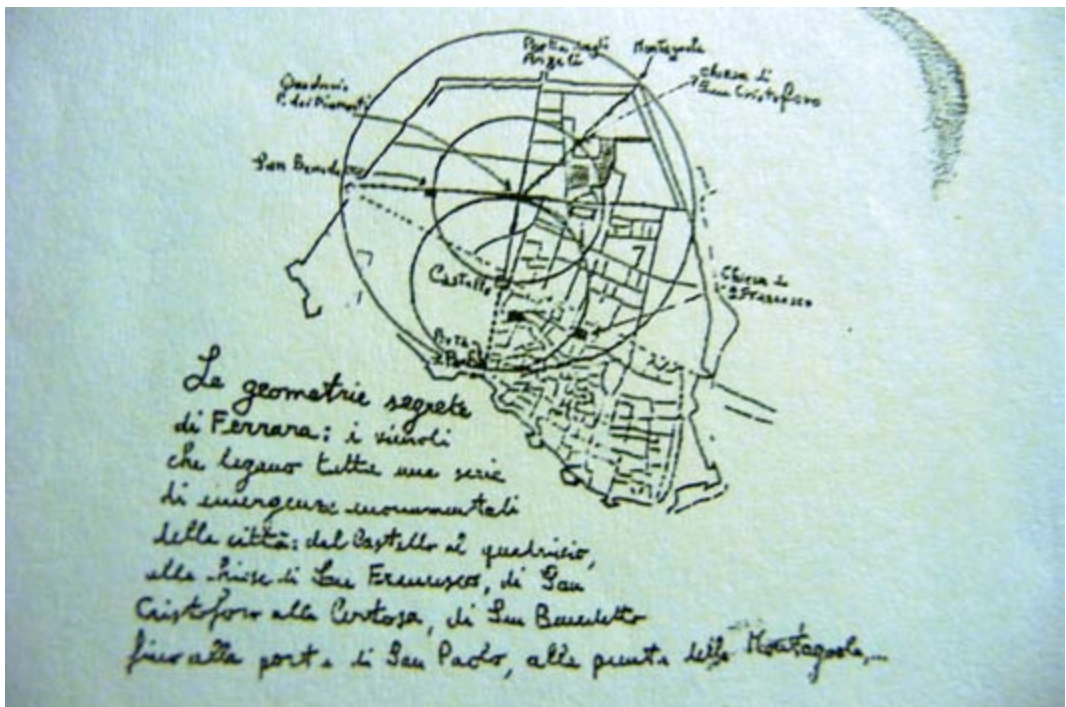 Porta degli
Angeli
Montagnola
Chiesa di
San Cristoforo
Quadrivio
P. dei Diamanti
San Benedetto
Castello
Chiesa di
S. Francesco
Porta
S. Paolo
Le geometrie segrete
di Ferrara: i vincoli
che legano tutta una serie
di emergenze monumentali
della città: dal Castello al quadrivio,
alle chiese di San Francesco, di San
Cristoforo alla Certosa, di San Benedetto
fino alla porta di San Paolo, alla punta della Montagnola,...